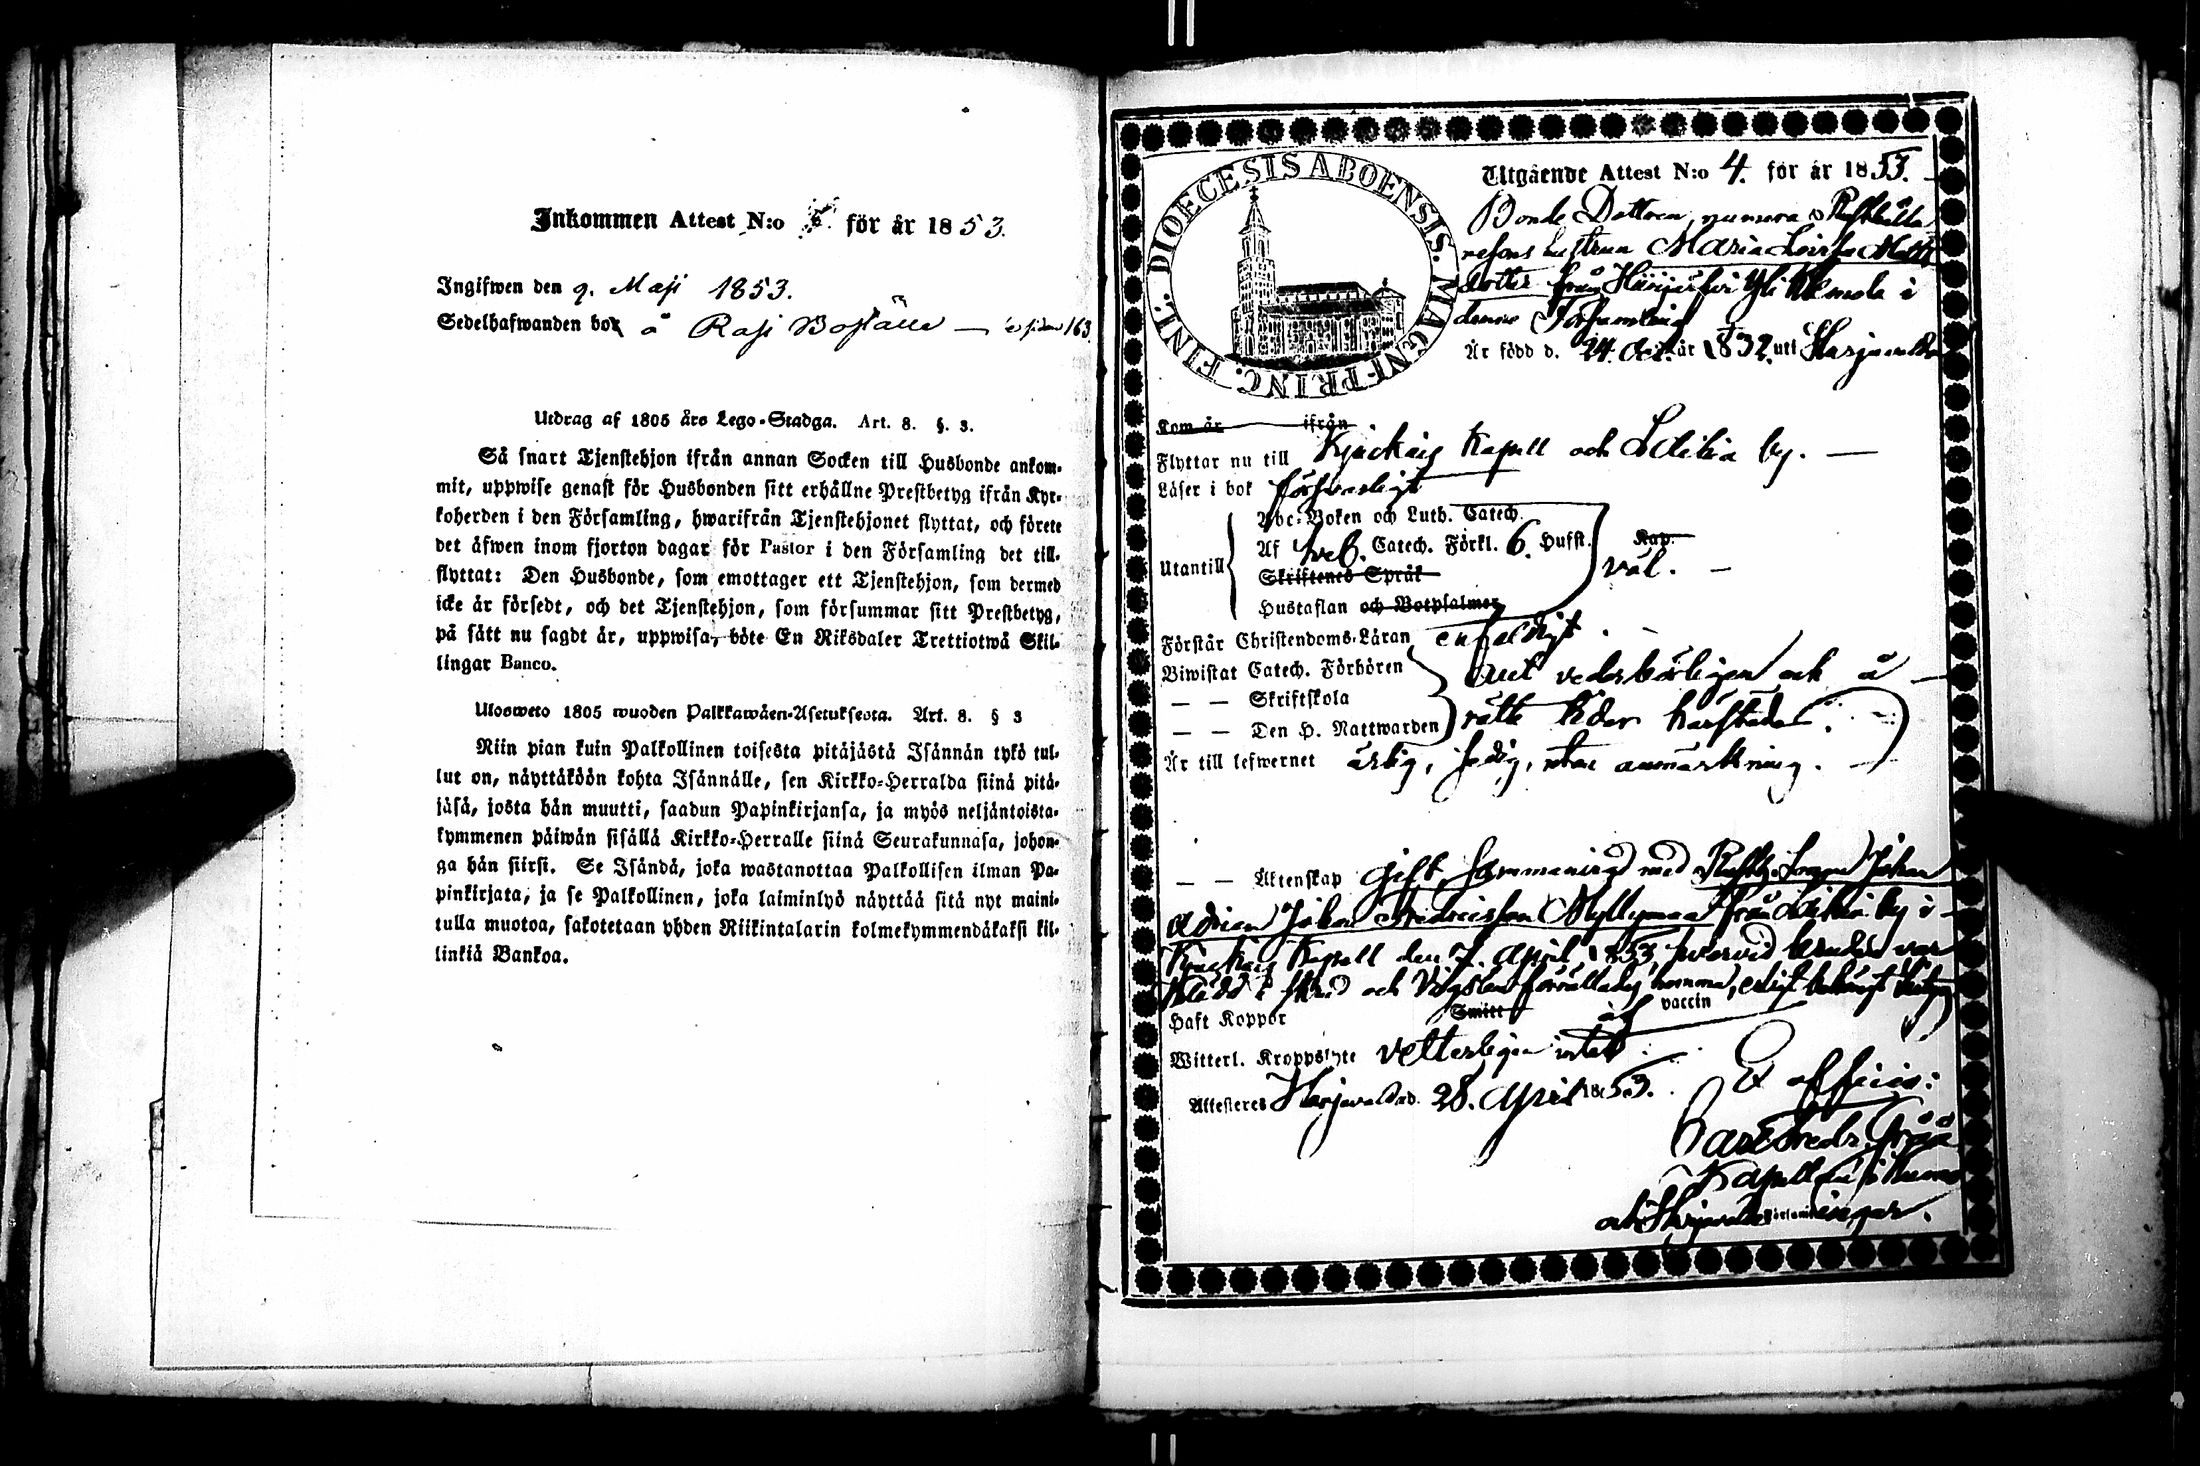 Inkommen Attest N:o för år 1853.
Ingifwen den 9. Maji 1853.
Sedelhafwanden bor å Rasi Boställe —
Utdrag af 1805 års Lego-Stadga. Art. 8. §. 3.
Så snart Tjenstehjon ifrån annan Socken till Husbonde ankom-
mit, uppwise genast för Husbonden sitt erhållne Prestbetyg ifrån Kyr-
koherden i den Församling, hwarifrån Tjenstehjonet flyttat, och förete
det äfwen inom fjorton dagar för Pastor i den Församling det till-
flyttat: Den Husbonde, som emottager ett Tjenstehjon, som dermed
icke är försedt, och det Tjenstehjon, som försummar sitt Prestbetyg,
på sätt nu sagdt är, uppwisa, böte En Riksdaler Trettiotwå Skil-
lingar Banco.
Ulosweto 1805 wuoden Palkkawäen-Asetuksesta. Art. 8. § 3
Niin pian kuin Palkollinen toisesta pitäjästä Isännän tykö tul-
lut on, näyttäköön kohta Isännälle, sen Kirkko-Herralda siinä pitä-
jäsä, josta hän muutti, saadun Papinkirjansa, ja myös neljäntoista-
kymmenen päiwän sisällä Kirkko-Herralle siinä Seurakunnasa, johon-
ga hän siirsi. Se Isändä, joka wastanottaa Palkollisen ilman Pa-
pinkirjata, ja se Palkollinen, joka laiminlyö näyttää sitä nyt maini-
tulla muotoa, sakotetaan yhden Riikintalarin kolmekymmendäkaksi kil-
linkiä Bankoa.
DIOECESIS ABOENSIS. MAGNI PRINC. FINL.
Utgående Attest N:o 4. för år 1853.
Bonde Dottren, numera Rusthålla
resons hustrun Maria Lovisa Matts
dotter från Hiirijärvi Yli
denna Församling
Är född d. 24. Oct. år 1832. uti Harjavalda
Kom år ifrån
Flyttar nu till Kjuckais Kapell och by. —
Läser i bok försvarligt
Abc-Boken och Luth. Catech.
Af Sveb. Catech. Förkl. 6. Hufst. Kap.
Utantill väl. —
Skriftenes Språk
Hustaflan och Botpsalmer
Förstår Christendoms-Läran enfaldigt.
Biwistat Catech. Förhören
— — Skriftskola
— — Den H. Nattwarden
vederbörligen och å
rätta tider härstädes.
Är till lefwernet ärlig, sedig, utan anmärkning. —
— — Äktenskap gift, sammanvigd med Rusth. Sonen Johan
Adrian Johan Fredricsson Myllymaa från by i
Kjuckais Kapell den 7. April 1853, hvarvid bruden var
klädd i skrud och
Haft Koppor Smitt af vaccin
Witterl. Kroppslyte vetterligen intet.
Attesteras Harjavalda d. 28. April 1853.
Ex officio:
Carl Fredr.
Kapellan i Kumo
och Harjavalda Församlingar.